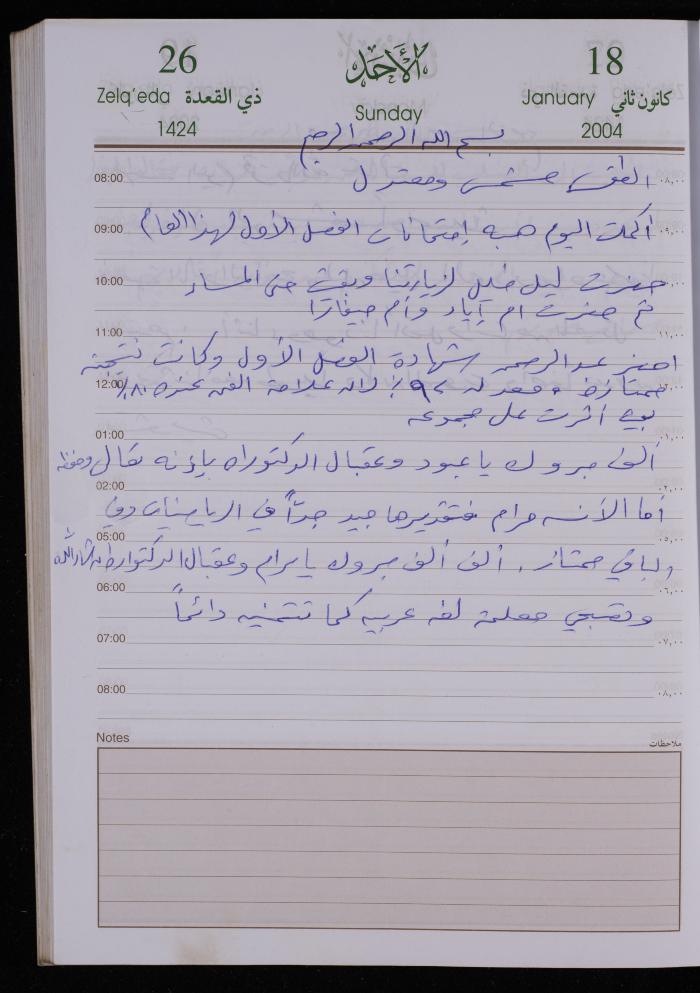 26 الأحد 18
Zelq'eda ذي القعدة Sunday January كانون ثاني
1424 2004
بسم الله الرحمن الرحيم
08:00 الطقس مشمس ومعتدل ٠٨,٠٠
09:00 أكملت اليوم هبه إمتحانات الفصل الأول لهذا العام ٠٩,٠٠
10:00 حضرت ليل خليل لزيارتنا وبقيت حتى المساء
ثم حضرت ام إياد وأم جيفارا
11:00
احضر عبد الرحمن شهادة الفصل الأول وكانت نتيجته
12:00 ممتاز ومعدله ٩٢٪ لانه علامة الفن عنده ٨٠٪
يعني أثرت على مجموعه
01:00 ٠١,٠٠
ألف مبروك يا عبود وعقبال الدكتوراه بإذنه تعالى
02:00 ٠٢,٠٠
أما الآنسه مرام فتقديرها جيد جداً في الرياضيات وفي
05:00 ٠٥,٠٠
والباقي ممتاز. ألف ألف مبروك يا مرام وعقبال الدكتوراه ان شاء الله
06:00 ٠٦,٠٠
وتصبحي معلمة لغه عربيه كما تتمنيه دائماً
07:00 ٠٧,٠٠
08:00 ٠٨,٠٠
Notes ملاحظات